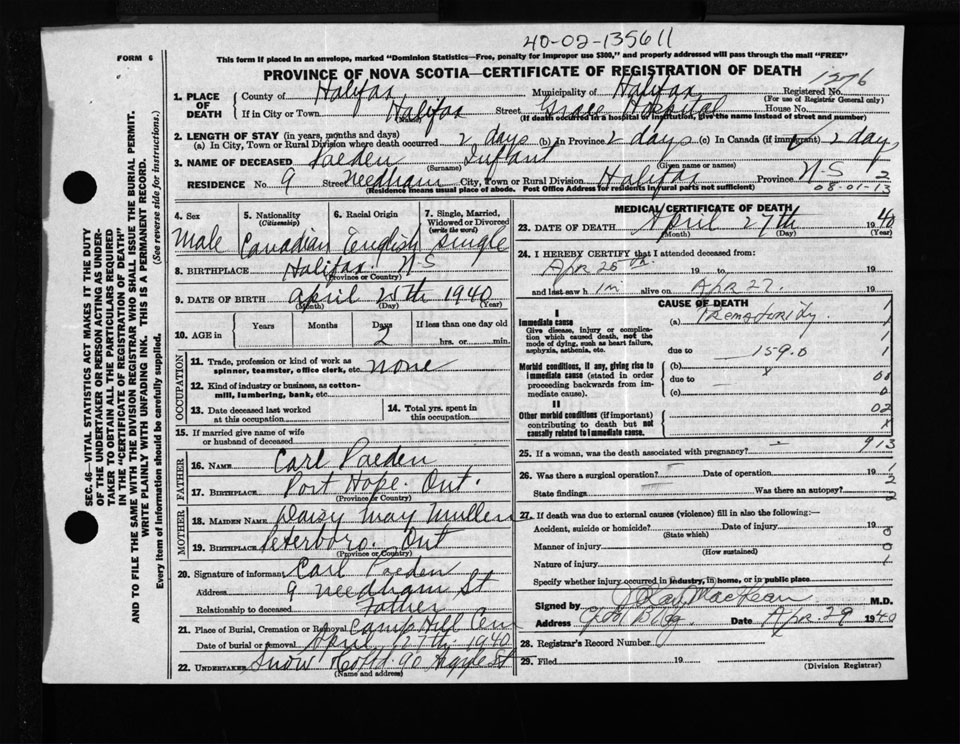 40-02-135611
FORM 6
This form if placed in an envelope, marked "Dominion Statistics—Free, penalty for improper use $300," and properly addressed will pass through the mail "FREE"
PROVINCE OF NOVA SCOTIA—CERTIFICATE OF REGISTRATION OF DEATH
1276
1. PLACE OF DEATH
County of Halifax Municipality of Halifax Registered No.
(For use of Registrar General only)
If in City or Town Halifax Street Grace Hospital House No.
(Name) (If death occurred in a hospital or institution, give the name instead of street and number)
2. LENGTH OF STAY (in years, months and days)
(a) In City, Town or Rural Division where death occurred 2 days (b) In Province 2 days (c) In Canada (if immigrant) 2 days
3. NAME OF DECEASED Paeden Infant
(Surname) (Given name or names)
RESIDENCE No. 9 Street Needham City, Town or Rural Division Halifax Province N-S 2
(Residence means usual place of abode. Post Office Address for residents in rural parts not sufficient) 08-01-13
4. Sex
Male
5. Nationality
(Citizenship)
Canadian
6. Racial Origin
English
7. Single, Married, Widowed or Divorced
(write the word)
single
8. BIRTHPLACE Halifax N-S
(Province or Country)
9. DATE OF BIRTH April 25th 1940
(Month) (Day) (Year)
10. AGE in
Years Months Days If less than one day old
2 hrs. or min.
OCCUPATION
11. Trade, profession or kind of work as spinner, teamster, office clerk, etc. none
12. Kind of industry or business, as cotton-mill, lumbering, bank, etc.
13. Date deceased last worked at this occupation
14. Total yrs. spent in this occupation
15. If married give name of wife or husband of deceased
FATHER
16. NAME Carl Paeden
17. BIRTHPLACE Port Hope. Ont.
(Province or Country)
MOTHER
18. MAIDEN NAME Daisy May Mullen
19. BIRTHPLACE Peterboro. Ont
(Province or Country)
20. Signature of informant Carl Paeden
Address 9 Needham St
Relationship to deceased Father
21. Place of Burial, Cremation or Removal Camp Hill Cem
Date of burial or removal April 1940
22. UNDERTAKER Snow & Co Ltd. 90 Argyle St
(Name and address)
MEDICAL CERTIFICATE OF DEATH
23. DATE OF DEATH April 27th 1940
(Month) (Day) (Year)
24. I HEREBY CERTIFY that I attended deceased from:
Apr 25th 19 to 19
and last saw h im alive on Apr 27. 19
CAUSE OF DEATH
I
Immediate cause
Give disease, injury or complication which caused death, not the mode of dying, such as heart failure, asphyxia, asthenia, etc.
(a) Prematurity.
due to 159.0
Morbid conditions, if any, giving rise to immediate cause (stated in order proceeding backwards from immediate cause).
(b)
due to
(c)
II
Other morbid conditions (if important) contributing to death but not causally related to immediate cause.
25. If a woman, was the death associated with pregnancy? 913
26. Was there a surgical operation? Date of operation 19
State findings Was there an autopsy?
27. If death was due to external causes (violence) fill in also the following:—
Accident, suicide or homicide? Date of injury 19
(State which)
Manner of injury
(How sustained)
Nature of injury
Specify whether injury occurred in industry, in home, or in public place
Signed by J. Ray MacKean M.D.
Address Bldg. Date Apr. 29 1940
28. Registrar's Record Number
29. Filed 19
(Division Registrar)
SEC. 46—VITAL STATISTICS ACT MAKES IT THE DUTY OF THE UNDERTAKER OR PERSON ACTING AS UNDERTAKER TO OBTAIN ALL THE PARTICULARS REQUIRED IN THE "CERTIFICATE OF REGISTRATION OF DEATH" AND TO FILE THE SAME WITH THE DIVISION REGISTRAR WHO SHALL ISSUE THE BURIAL PERMIT.
WRITE PLAINLY WITH UNFADING INK. THIS IS A PERMANENT RECORD.
Every item of information should be carefully supplied. (See reverse side for instructions.)